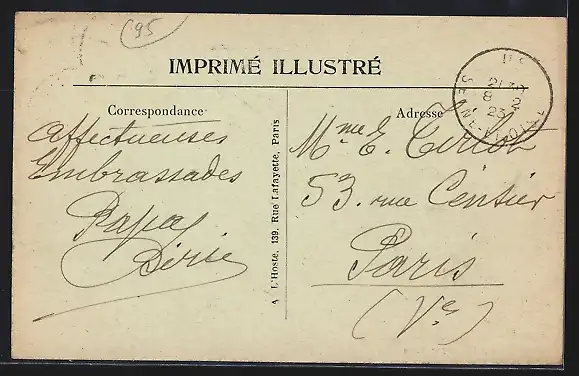 95
IMPRIMÉ ILLUSTRÉ
Correspondance
Affectueuses
Embrassades
Papa
Adresse
Mme E.
53, rue Censier
Paris
(Ve)
A L'Hoste, 139, Rue Lafayette, Paris
US
21 30
8 2
23
SEINE-ET-OISE